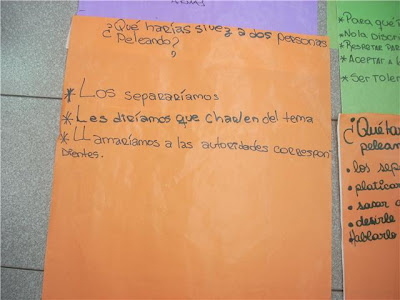 ¿Qué harías si vez a dos personas
Peleando?
* Los separaríamos
* Les diríamos que charlen del tema
* LLamaríamos a las autoridades correspon
dientes.
* Para qué
* No la discri
* Respetar
* Aceptar a
* Ser toler
¿Qué har
pelean
• los sep
• platicar
• sacar a
• desirle
Hablarle